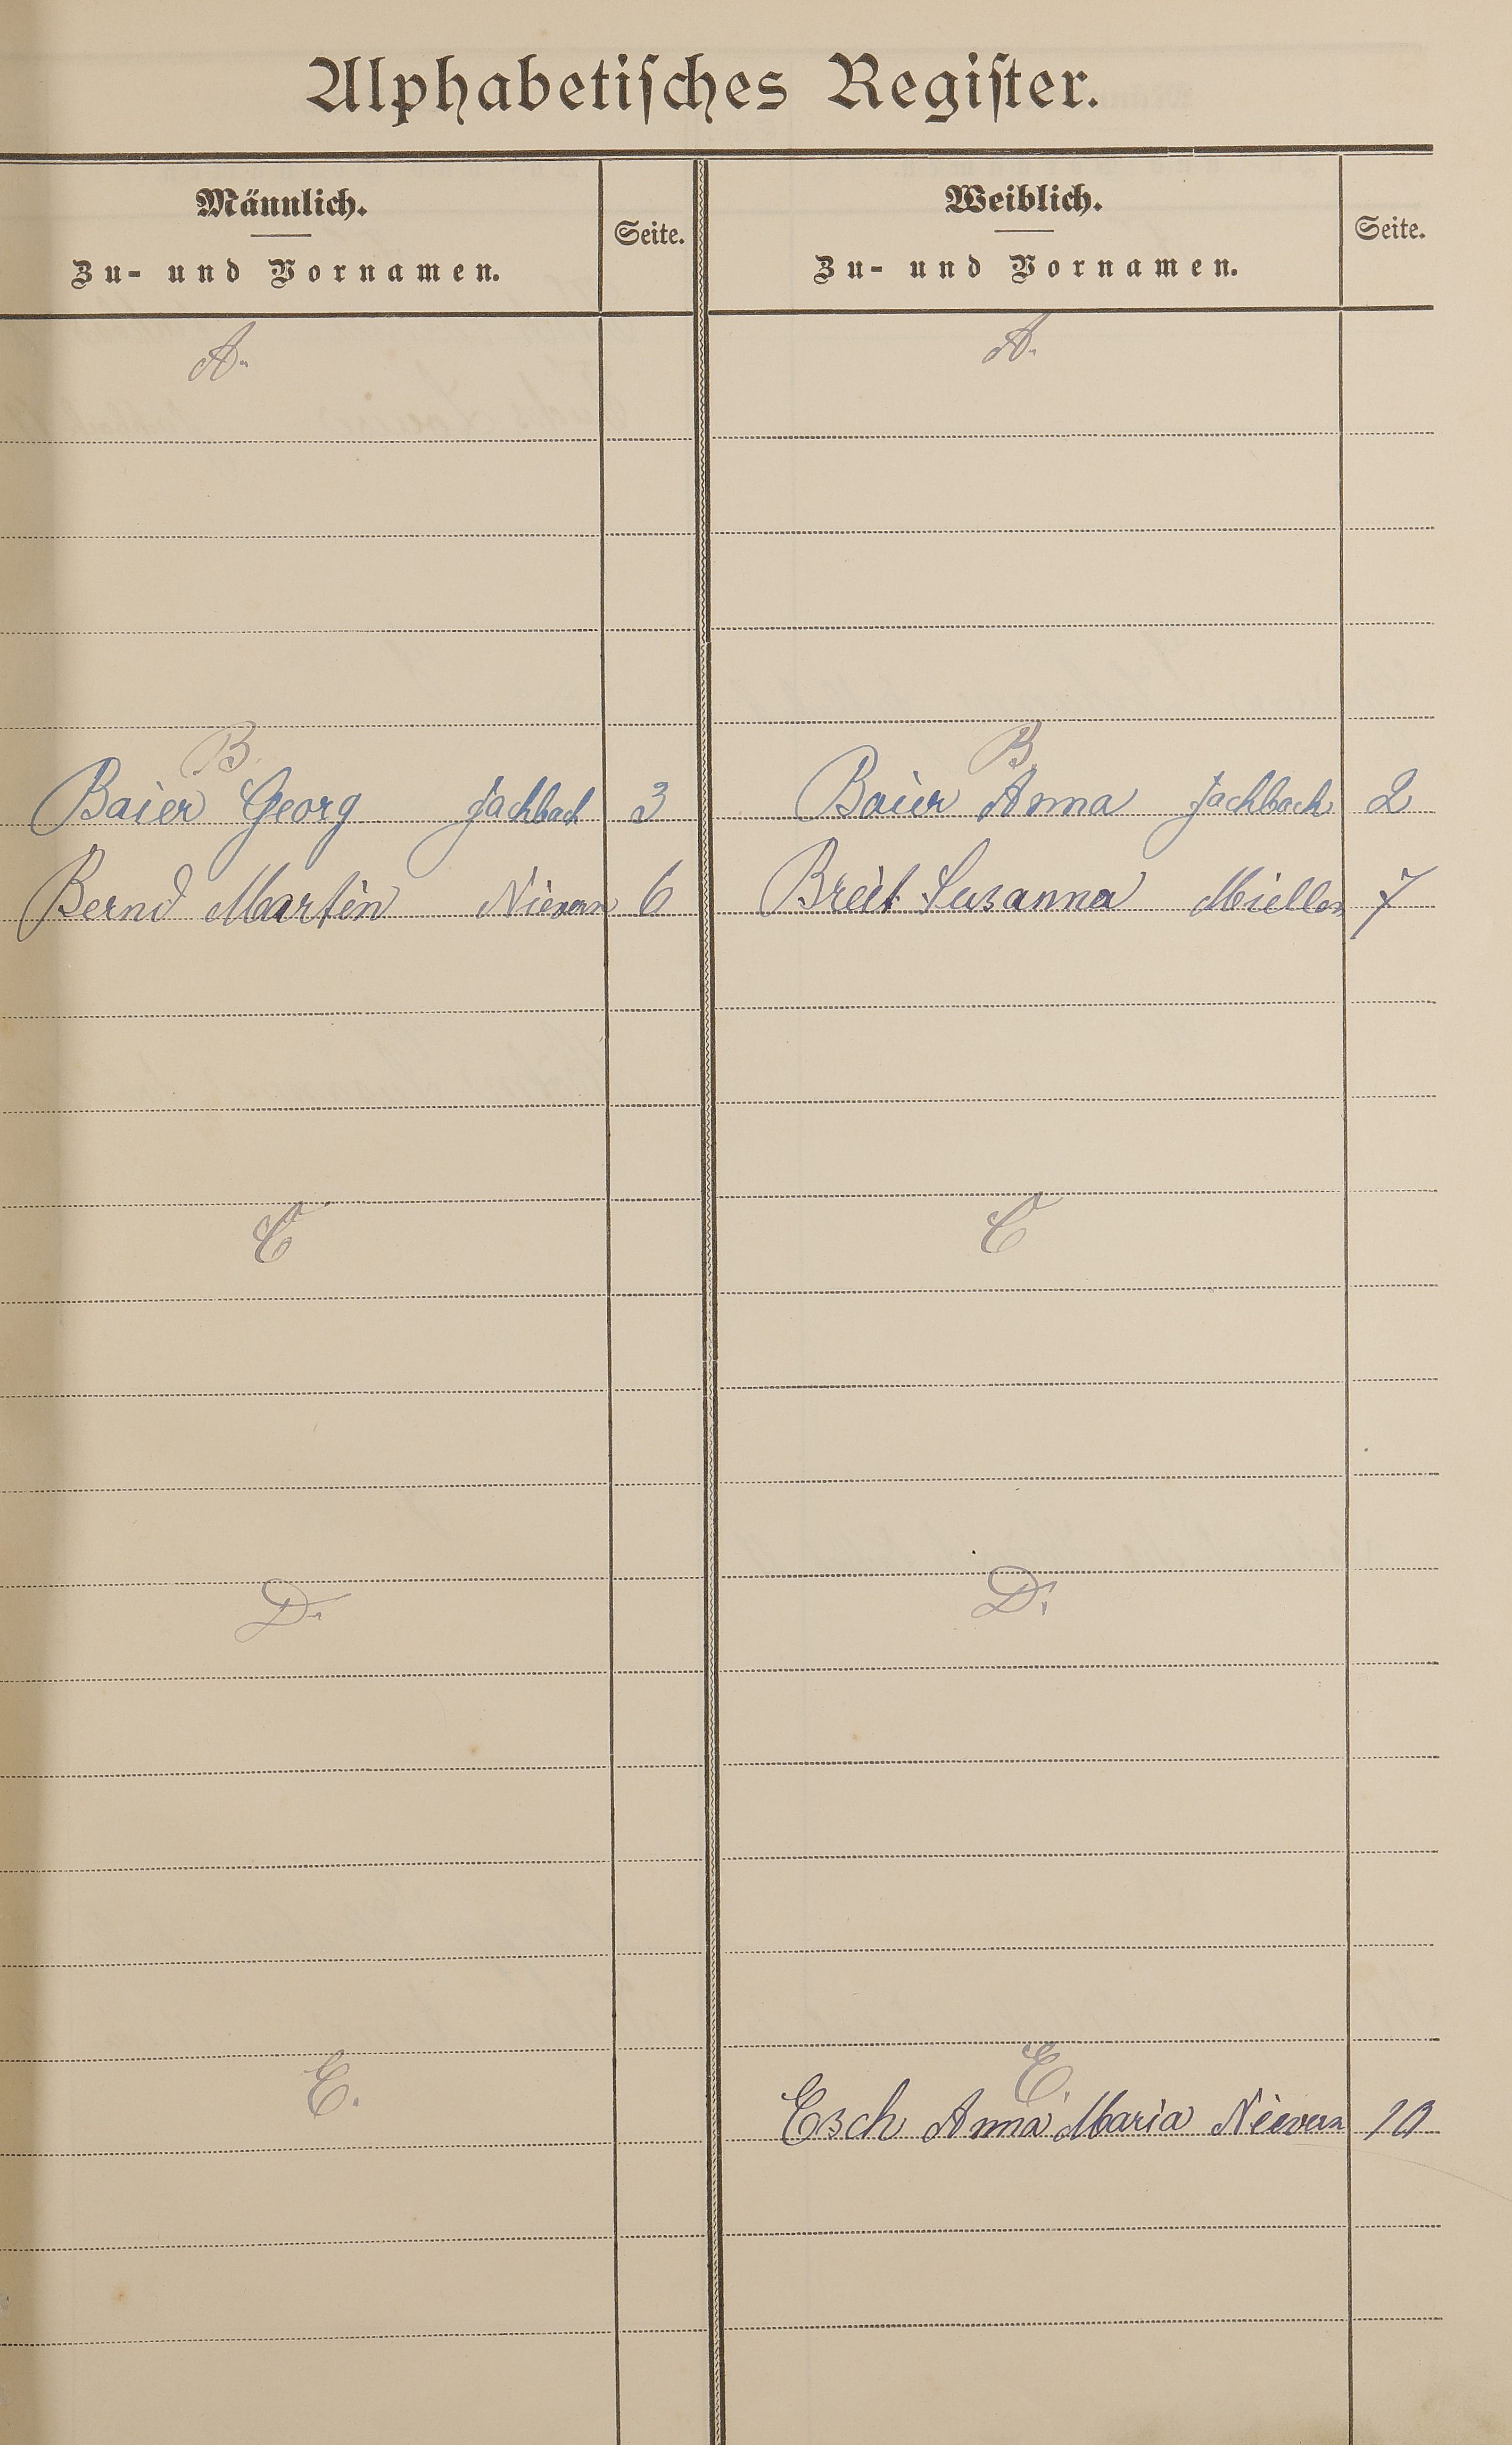 Alphabetisches Register.
Männlich. Seite. Weiblich. Seite.
Zu- und Vornamen. Zu- und Vornamen.
A. A.
B. B.
Baier Georg Fachbach 3 Baier Anna Fachbach 2
Bernd Martin Nievern 6 Breit Susanna Miellen 7
C C
D. D.
E. E.
Esch Anna Maria Nievern 10